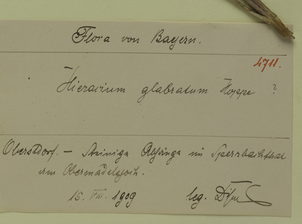 Flora von Bayern.
4711.
Hieracium glabratum Hoppe ?
Oberstdorf. – Steinige Abhänge im Sperrbachtobel
am Obermädelejoch.
15. VIII. 1909 leg.